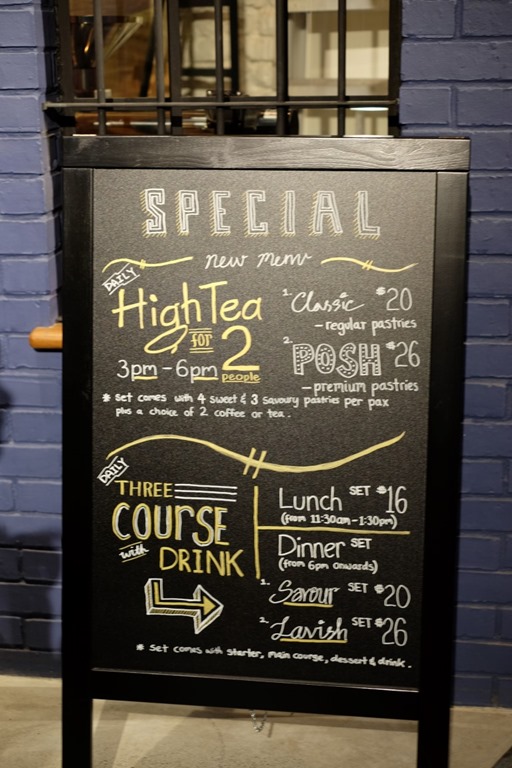 SPECIAL
new menu
DAILY
High Tea
for 2
people
3pm - 6pm
1. Classic $20
- regular pastries
2. POSH $26
- premium pastries
* set comes with 4 sweet & 3 savoury pastries per pax
plus a choice of 2 coffee or tea.
DAILY
THREE
COURSE
with
DRINK
Lunch SET $16
(from 11:30am - 1:30pm)
Dinner SET
(from 6pm onwards)
1. Savour SET $20
2. Lavish SET $26
* set comes with starter, main course, dessert & drink.